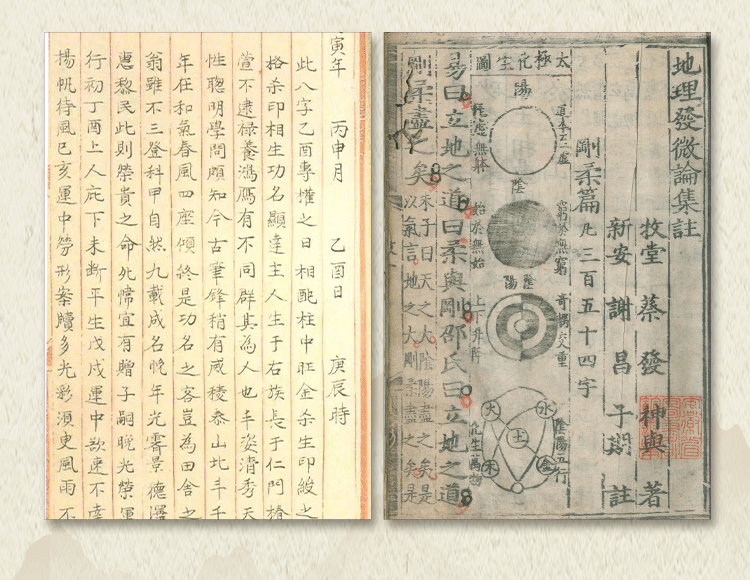 地理發微論集註
牧堂蔡發神與著
新安謝昌子期註
剛柔篇凡三百五十四字
太極化生圖
陽
陰
陰陽
始於無始
上下升降
水
火
土
木
金
陰陽五行
化生萬物
易曰立地之道曰柔與剛邵氏曰立地之道
剛柔盡之矣
朱子曰天之大陰陽盡之矣是
以氣言地之大剛柔盡之矣是
寅年 丙申月 乙酉日 庚辰時
此八字乙酉專權之日相配柱中旺金杀生印綬之
格杀印相生功名顯達主人生于右族長于仁門椿
萱不逮祿養鴻鴈有不同群其為人也丰姿清秀天
性聰明學問頗知今古筆鋒稍有威稜泰山北斗千
年在和氣春風四座傾終是功名之客豈為田舍之
翁雖不三登科甲自然九載成名晚年光霽景德澤
惠黎民此則榮貴之命死帰宜有贈子嗣晚光榮運
行初丁酉上人庇下未斷平生戊戌運中欲速不達
揚帆待風巳亥運中勞形案牘多光彩須更風雨不